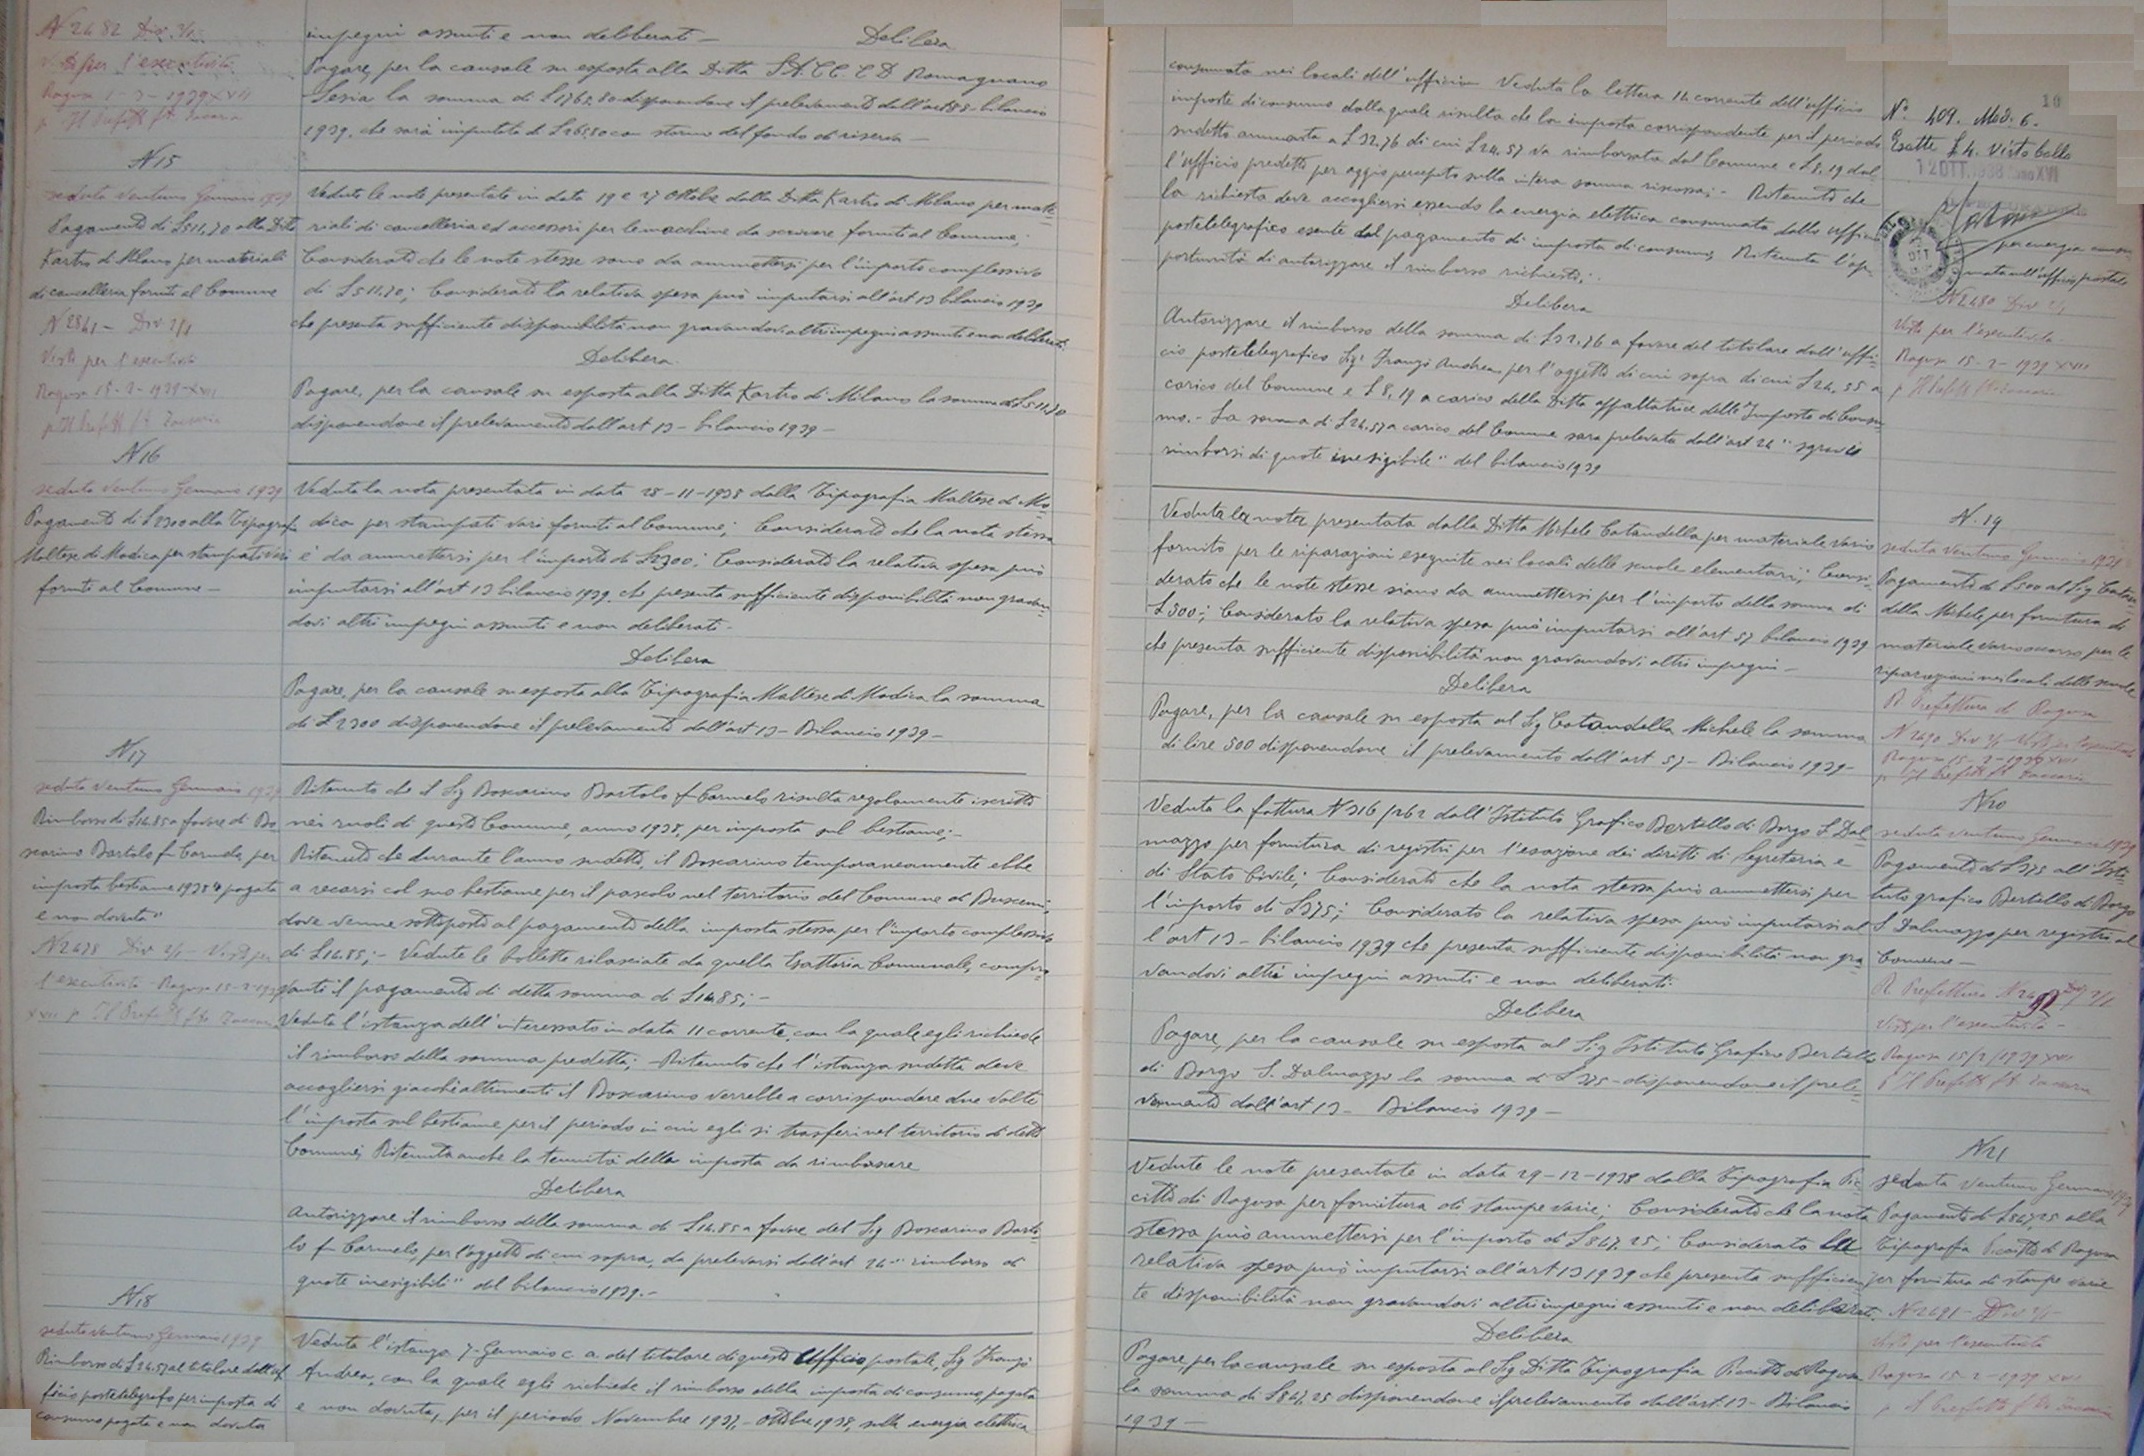 N 2482 Div. 2/1
Visto per l'esecutività
Ragusa 1-3-1939 XVII
p. Il Prefetto
impegni assunti e non deliberati – Delibera
Pagare, per la causale su esposta alla Ditta Romagnano
Sesia la somma di £ 1765,80 disponendone il prelevamento dall'art 88 - bilancio
1939, che sarà imputata di £ 265,80 con storno dal fondo di riserva –
N 15
seduta ventuno Gennaio 1939
Pagamento di £ 511,70 alla Ditta
Kartro di Milano per materiali
di cancelleria forniti al Comune
N 2841 - Div 2/1
Visto per l'esecutività
Ragusa 15-2-1939-XVII
p Il Prefetto
Vedute le note presentate in data 19 e 27 Ottobre dalla Ditta Kartro di Milano per mate-
riali di cancelleria ed accessori per le macchine da scrivere forniti al Comune;
Considerato che le note stesse sono da ammettersi per l'importo complessivo
di £ 511,70; Considerato la relativa spesa può imputarsi all'art 13 bilancio 1939
che presenta sufficiente disponibilità non gravandovi altri impegni assunti e non deliberati.
Delibera
Pagare, per la causale su esposta alla Ditta Kartro di Milano la somma di £ 511,70
disponendone il prelevamento dall'art 13 - bilancio 1939 –
N 16
seduta ventuno Gennaio 1939
Pagamento di £ 2300 alla Tipografia
Maltese di Modica per stampati vari
forniti al Comune –
Veduta la nota presentata in data 28-11-1938 dalla Tipografia Maltese di Mo-
dica per stampati vari forniti al Comune; Considerato che la nota stessa
è da ammettersi per l'importo di £ 2300; Considerato la relativa spesa può
imputarsi all'art 13 bilancio 1939, che presenta sufficiente disponibiltà non gravan-
dovi altri impegni assunti e non deliberati.
Delibera
Pagare, per la causale su esposta alla Tipografia Maltese di Modica la somma
di £ 2300 disponendone il prelevamento dall'art 13 - Bilancio 1939 –
N 17
seduta ventuno Gennaio 1939
Rimborso di £ 14.85 a favore di Bo-
scarino Bartolo fu Carmelo, per
imposta bestiame 1938 pagata
e non dovuta"
N 2478 Div 2/1 - Visto per
l'esecutività - Ragusa 15-2-1939
XVII p. Il Prefetto
Ritenuto che il Sig Boscarino Bartolo fu Carmelo risulta regolarmente iscritto
nei ruoli di questo Comune, anno 1938, per imposta sul bestiame; –
Ritenuto che durante l'anno sudetto, il Boscarino temporaneamente ebbe
a recarsi col suo bestiame per il pascolo nel territorio del Comune di Buscemi,
dove venne sottoposto al pagamento della imposta stessa per l'importo complessivo
di £ 14.85; – Vedute le bollette rilasciate da quella Esattoria Comunale, compro-
vanti il pagamento di detta somma di £ 14.85; –
Veduta l'istanza dell'interessato in data 11 corrente, con la quale egli richiede
il rimborso della somma predetta; – Ritenuto che l'istanza sudetta deve
accogliersi giacchè altrimenti il Boscarino verrebbe a corrispondere due volte
l'imposta sul bestiame per il periodo in cui egli si trasferì nel territorio di detto
Comune; Ritenuta anche la tenuità della imposta da rimborsare
Delibera
Autorizzare il rimborso della somma di £ 14.85 a favore del Sig Boscarino Barto-
lo fu Carmelo, per l'oggetto di cui sopra, da prelevarsi dall'art 24 " rimborso di
quote inesigibile" del bilancio 1939. –
N 18
seduta ventuno Gennaio 1939
Rimborso di £ 24.57 al titolare dell'uf-
ficio postetelegrafo per imposta di
consumo pagata e non dovuta
Veduta l'istanza 7 Gennaio c. a. del titolare di questo Ufficio postale, Sig Franzò
Andrea, con la quale egli richiede il rimborso della imposta di consumo, pagata
e non dovuta, per il periodo Novembre 1937, - Ottobre 1938, sulla energia elettrica
10
consumata nei locali dell'ufficio. Veduta la lettera 14 corrente dell'ufficio
imposte di consumo dalla quale risulta che la imposta corrispondente per il periodo
sudetto ammonta a £ 32,76 di cui £ 24.57 va rimborsata dal Comune e £ 8,19 dal-
l'Ufficio predetto per aggio percepito sulla intera somma riscossa; – Ritenuto che
la richiesta deve accogliersi essendo la energia elettrica consumata dallo ufficio
postetelegrafico esente dal pagamento di imposta di consumo; Ritenuta l'op-
portunità di autorizzare il rimborso richiesto;
Delibera
Autorizzare il rimborso della somma di £ 32,76 a favore del titolare dell'uffi-
cio postetelegrafico Sig. Franzò Andrea per l'oggetto di cui sopra di cui £ 24,35 a
carico del Comune e £ 8,19 a carico della Ditta appaltatrice delle Imposte di Consu-
mo. – La somma di £ 24,57 a carico del Comune sarà prelevata dall'art 24 " sgravi e
rimborsi di quote inesigibile" del bilancio 1939
N° 409. Mod. 6.
Esatte £ 4. Visto bollo
12 OTT. 1938 Anno XVI
per energia consu-
mata all'ufficio postale
N 2480 Div 2/1
Visto per l'esecutività
Ragusa 15-2-1939 XVII
N. 19
seduta ventuno Gennaio 1939
Pagamento di £ 500 al Sig Catan-
della Michele, per fornitura di
materiale vario occorso per le
riparazioni nei locali delle scuole
R Prefettura di Ragusa
N 2490 Div 2/1 Visto per l'esecutività
Ragusa 15-2-1939 XVII
p Il Prefetto
Veduta la nota presentata dalla Ditta Michele Catandella per materiale vario
fornito per le riparazioni eseguite nei locali delle scuole elementari; Consi-
derato che le note stesse siano da ammettersi per l'importo della somma di
£ 500; Considerato la relativa spesa può imputarsi all'art 57 bilancio 1939
che presenta sufficiente disponibilità non gravandovi altri impegni –
Delibera
Pagare, per la causale su esposta al Sg Catandella Michele la somma
di lire 500 disponendone il prelevamento dall'art 57 - Bilancio 1939 -
N 20
seduta ventuno Gennaio 1939
Pagamento di £ 375 all'Isti-
tuto grafico Bertello di Borgo
S Dalmazzo per registri al
Comune –
R Prefettura N 2492 Div 2/1
Visto per l'esecutività –
Ragusa 15/2/1939 XVII
p Il Prefetto
Veduta la fattura N 316/262 dall'Istituto Grafico Bertello di Borgo S Dal-
mazzo per fornitura di registri per l'esazione dei diritti di Segreteria e
di Stato Civile; Considerato che la nota stessa può ammettersi per
l'importo di £ 375; Considerato la relativa spesa può imputarsi al-
l'art 13 - bilancio 1939 che presenta sufficiente disponibilità non gra-
vandovi altri impegni assunti e non deliberati.
Delibera
Pagare, per la causale su esposta al Sig Istituto Grafico Bertello
di Borgo S. Dalmazzo la somma di £ 375 - disponendone il prele-
vamento dall'art 13 - Bilancio 1939 –
N 21
seduta ventuno Gennaio 1939
Pagamento di £ 847,25 alla
Tipografia Piccitto di Ragusa
per fornitura di stampe varie
N 2491 - Div 2/1
Visto per l'esecutività
Ragusa 15-2-1939 XVII
p Il Prefetto
Vedute le note presentate in data 29-12-1938 dalla Tipografia Pic-
citto di Ragusa per fornitura di stampe varie; Considerato che la nota
stessa può ammettersi per l'importo di £ 847.25; Considerato la
relativa spesa può imputarsi all'art 13 1939 che presenta sufficien-
te disponibilità non gravandovi altri impegni assunti e non deliberati.
Delibera
Pagare, per la causale su esposta al Sig Ditta Tipografia Piccitto di Ragusa
la somma di £ 847.25 disponendone il prelevamento dall'art. 13 - Bilancio
1939 –